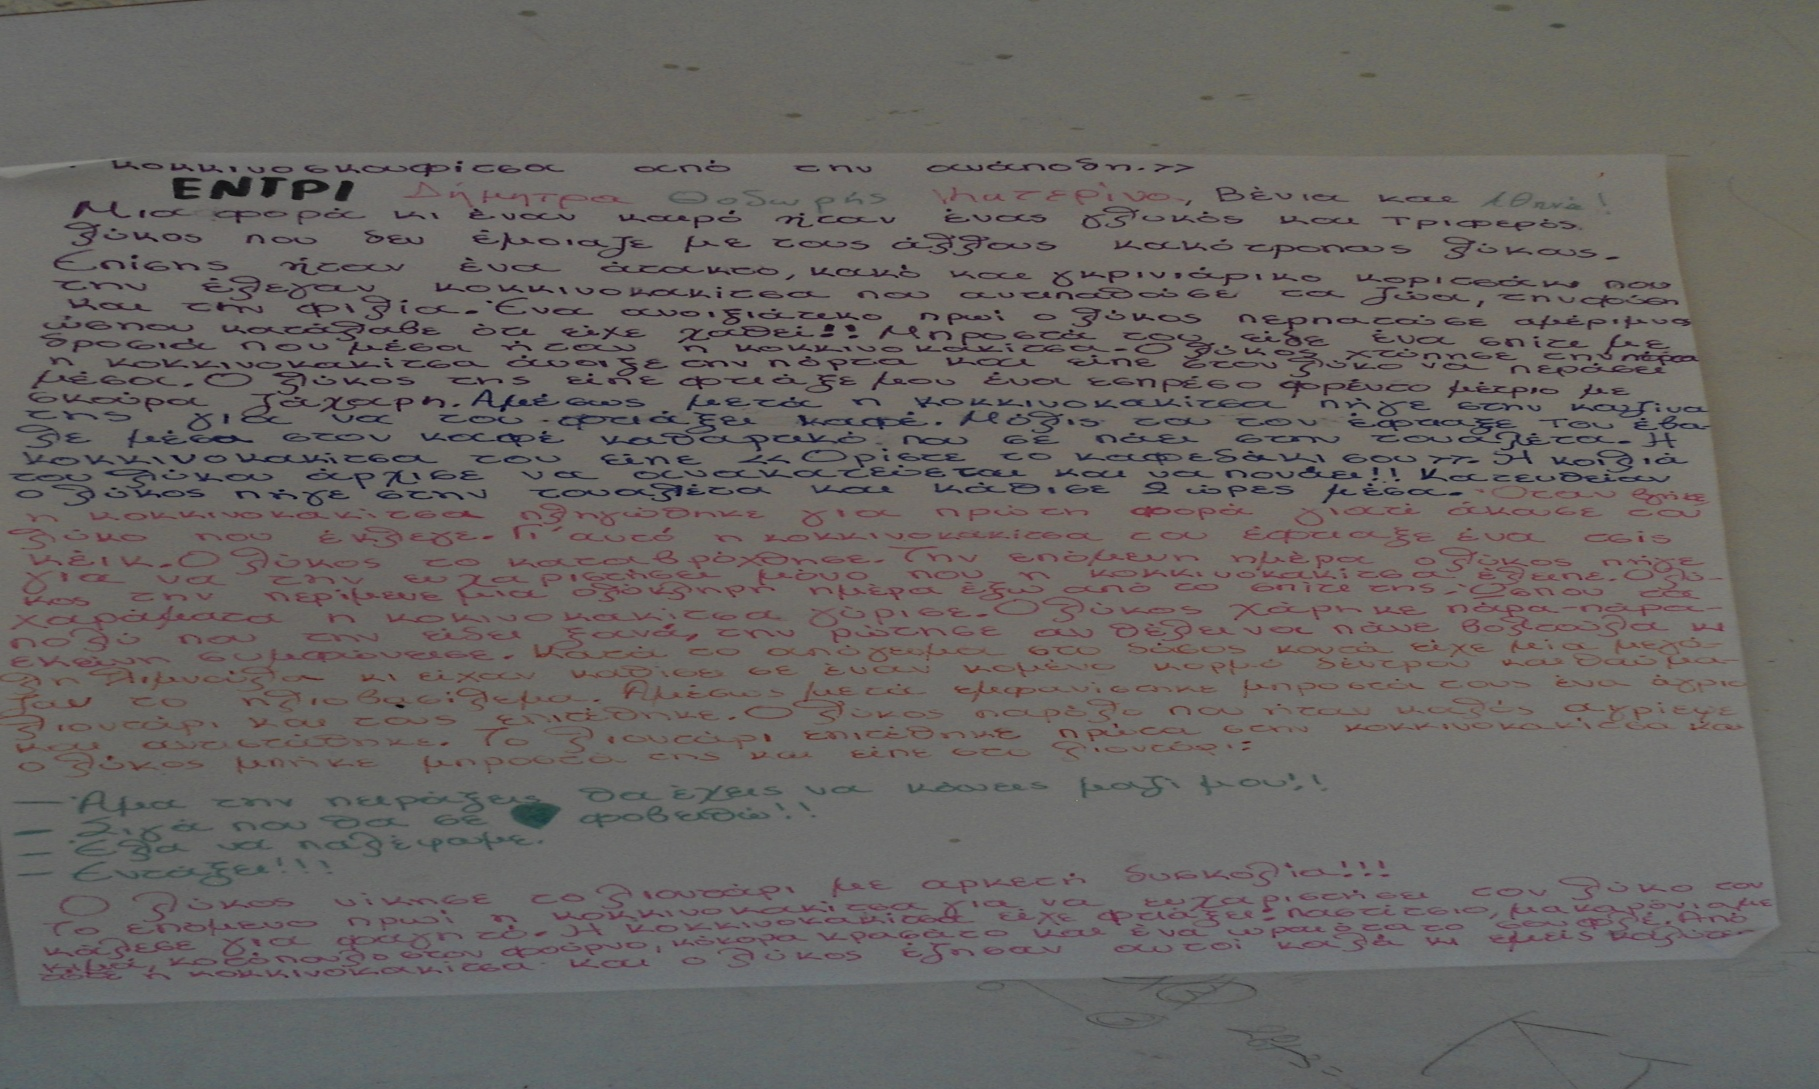 κοκκινοσκουφίτσα από την ανάποδη.>>
ΕΝΤΡΙ Δήμητρα Θοδωρής Κατερίνα, Βένια και Αθηνά!
Μια φορά κι έναν καιρό ήταν ένας γλυκός και τριφερός.
λύκος που δεν έμοιαζε με τους άλλους κακότροπους λύκους.
Επίσης ήταν ένα άτακτο, κακό και γκρινιάρικο κοριτσάκι που
την έλεγαν κοκκινοκακίτσα που αντιπαθούσε τα ζώα, την φύση
και την φιλία. Ένα ανοιξιάτικο πρωί ο λύκος περπατούσε αμέριμνος
ώσπου κατάλαβε ότι είχε χαθεί!! Μπροστά του είδε ένα σπίτι με
δροσιά που μέσα ήταν η κοκκινοκακίτσα. Ο λύκος χτύπησε την πόρτα
η κοκκινοκακίτσα άνοιξε την πόρτα και είπε στον λύκο να περάσει
μέσα. Ο λύκος της είπε φτιάξε μου ένα εσπρέσο φρέντο μέτριο με
σκούρα ζάχαρη. Αμέσως μετά η κοκκινοκακίτσα πήγε στην κουζίνα
της για να του φτιάξει καφέ. Μόλις τα τον έφτιαξε του έβα-
λε μέσα στον καφέ καθαρτικό που σε πάει στην τουαλέτα. Η
κοκκινοκακίτσα του είπε <<Ορίστε το καφεδάκι σου>>. Η κοιλιά
του λύκου άρχισε να ανακατεύεται και να πονάει!! Κατευθείαν
ο λύκος πήγε στην τουαλέτα και κάθισε 2 ώρες μέσα. Όταν βγήκε
η κοκκινοκακίτσα πληγώθηκε για πρώτη φορά γιατί άκουσε τον
λύκο που έκλεγε. Γι' αυτό η κοκκινοκακίτσα του έφτιαξε ένα τσις
κέικ. Ο λύκος το καταβρόχθησε. Την επόμενη ημέρα ο λύκος πήγε
για να την ευχαριστήσει μόνο που η κοκκινοκακίτσα έλειπε. Ο λύ-
κος την περίμενε μια ολόκληρη ημέρα έξω από το σπίτι της. Ώσπου τα
χαράματα η κοκινοκακίτσα γύρισε. Ο λύκος χάρηκε πάρα-πάρα-
πολύ που την είδε ξανά, την ρώτησε αν θέλει να πάνε βολτούλα κι
εκείνη συμφώνεισε. Κατά το απόγευμα στο δάσος κοντά είχε μία μεγά-
λη λιμνούλα κι είχαν καθίσει σε έναν κομένο κορμό δέντρου και θαύμα-
ζαν το ηλιοβασίλεμα. Αμέσως μετά εμφανίστηκε μπροστά τους ένα άγριο
λιοντάρι και τους επιτέθηκε. Ο λύκος παρόλο που ήταν καλός αγρίεψε
και αντιστάθηκε. Το λιοντάρι επιτέθηκε πρώτα στην κοκκινοκακίτσα και
ο λύκος μπήκε μπροστά της και είπε στο λιοντάρι:
— Άμα την πειράξεις θα έχεις να κάνεις μαζί μου!!
— Σιγά που θα σε φοβειθώ!!
— Έλα να παλέψαμε.
— Εντάξει!!!
Ο λύκος νίκησε το λιοντάρι με αρκετή δυσκολία!!!
Το επόμενο πρωί η κοκκινοκακίτσα για να ευχαριστήσει τον λύκο τον
κάλεσε για φαγητό. Η κοκκινοκακίτσα είχε φτιάξει: παστίτσιο, μακαρόνια με
κιμά, κοτόπουλο στον φούρνο, κόκορα κρασάτο και ένα ωραιότατο σουφλέ. Από
τότε η κοκκινοκακίτσα και ο λύκος έζησαν αυτοί καλά κι εμείς καλύτε-